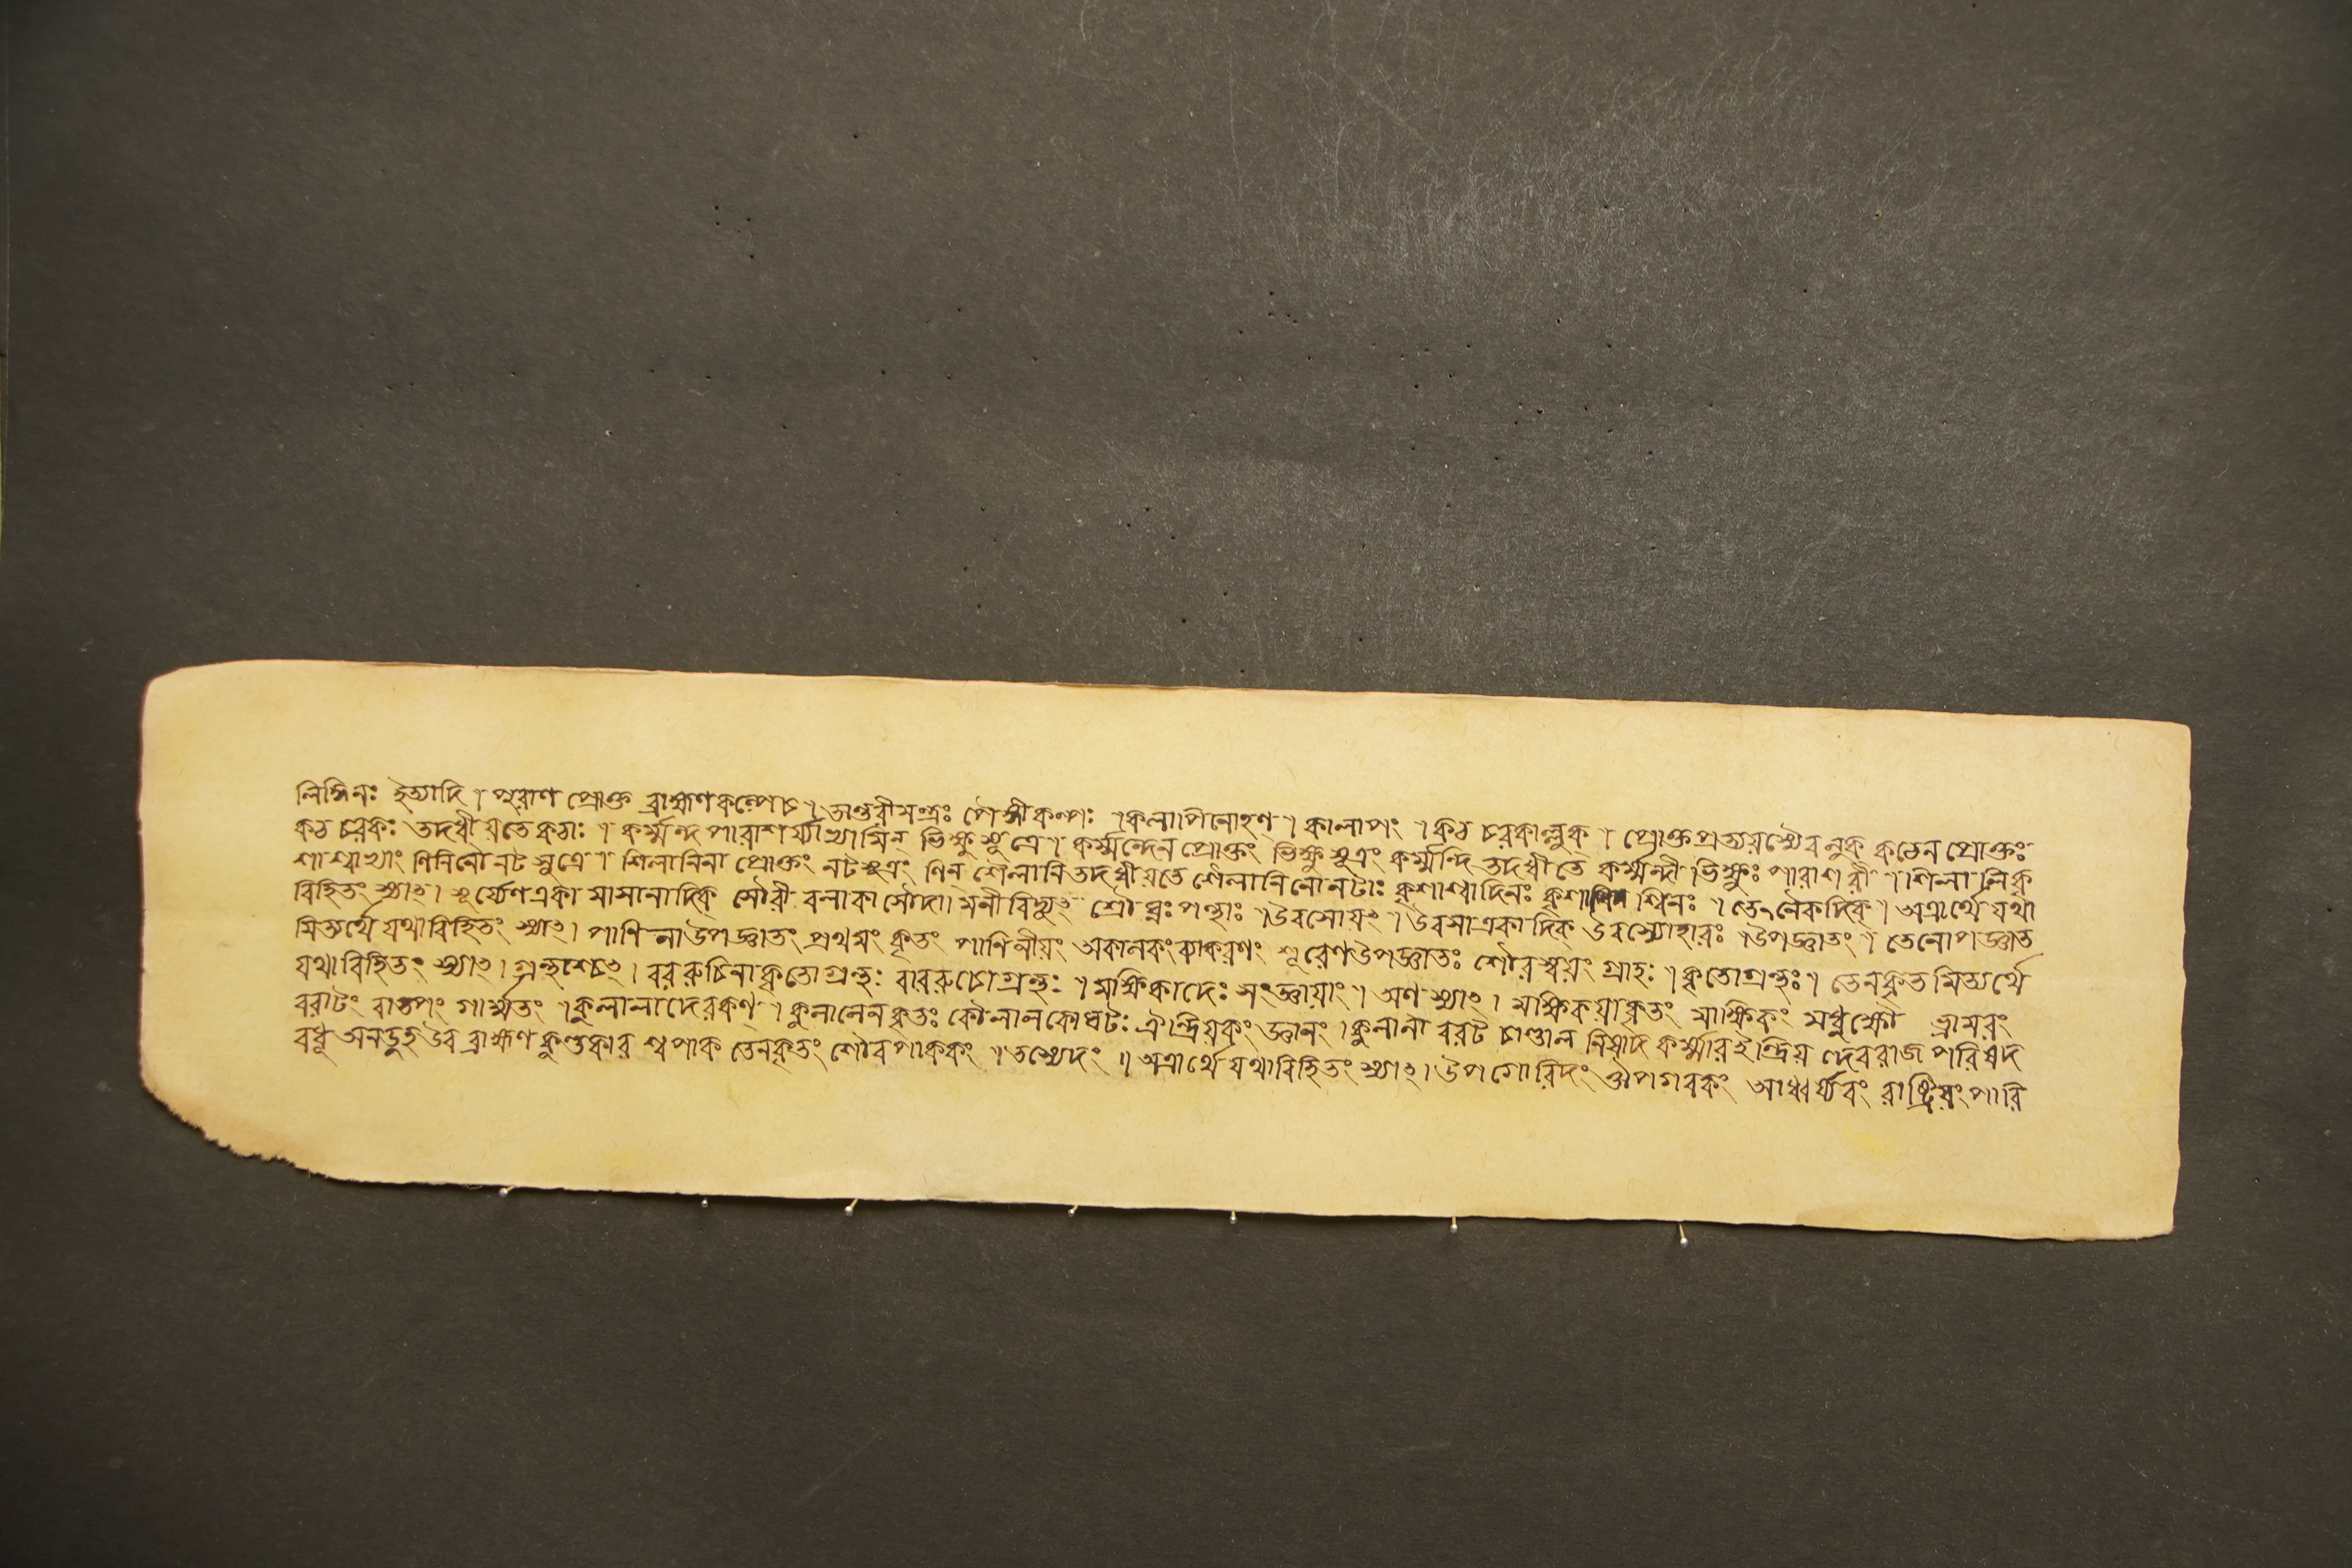 লিঙ্গিনঃ ইত্যাদি । পুরাণ প্রোক্ত ব্রাহ্মণকল্পেচ । তাণ্ডবীমন্ত্রঃ পৈঙ্গীকল্পঃ । কলাপিনোহণ্ । কালাপং । কঠ চরকাল্লুক্ । প্রোক্তপ্রত্যয়স্যৈব লুক্ কঠেন প্রোক্তঃ
কঠ চরকঃ তদধীয়তে কঠাঃ । কর্ম্মন্দ পারাশর্য্যাভ্যামিন্ ভিক্ষু সূত্রে । কর্ম্মন্দেন প্রোক্তং ভিক্ষু সূত্রং কর্ম্মন্দি তদধীতে কর্ম্মন্দী ভিক্ষুঃ পারাশরী । শিলালিকৃ
শাশ্বাভ্যাং ণিনিনৌ নট সূত্রে । শিলালিনা প্রোক্তং নটসূত্রং ণিন্ শৈলালি তদধীয়তে শৈলালিনো নটাঃ কৃশাশ্বাদিনঃ কৃশাশ্বিনঃ । তেনৈকদিক্ । অত্রার্থে যথা
বিহিতং স্যাৎ । সূর্য্যেণ একা সামানাদিক্ সৌরী বলাকা সৌদামনী বিদ্যুৎ শ্রৌঘ্নঃ পন্থাঃ । উরসোয়ৎ । উরসা একা দিক্ উরস্যোহারঃ । উপজ্ঞাতং । তেনোপজ্ঞাত
মিত্যর্থে যথাবিহিতং স্যাৎ । পাণিনা উপজ্ঞাতং প্রথমং কৃতং পাণিনীয়ং অকালকং ব্যাকরণং শূরেণ উপজ্ঞাতঃ শৌরস্বয়ং গ্রাহঃ । কৃতোগ্রন্থঃ । তেনকৃত মিত্যর্থে
যথাবিহিতং স্যাৎ । গ্রন্থশ্চেৎ । বররুচিনা কৃতো গ্রন্থঃ বাররুচো গ্রন্থঃ । মক্ষিকাদেঃ সংজ্ঞায়াং । অণ্ স্যাৎ । মক্ষিকয়া কৃতং মাক্ষিকং মধু ক্ষৌ ভ্রামরং
বরাটং বাতপং গার্ম্মতং । কুলালাদেরকণ্ । কুলালেন কৃতঃ কৌলালকোঘটঃ ঐন্দ্রিয়কং জ্ঞানং । কুলাল বরট চাণ্ডাল নিষাদ কর্ম্মার ইন্দ্রিয় দেবরাজ পরিষদ
বধূ অনডুহ উব ব্রাহ্মণ কুম্ভকার শ্বপাক তেনকৃতং শৌবপাককং । তস্যেদং । অত্রার্থে যথাবিহিতং স্যাৎ । উপগোরিদং ঔপগবকং আধ্বর্য্যবং রাষ্ট্রিয়ং পারি